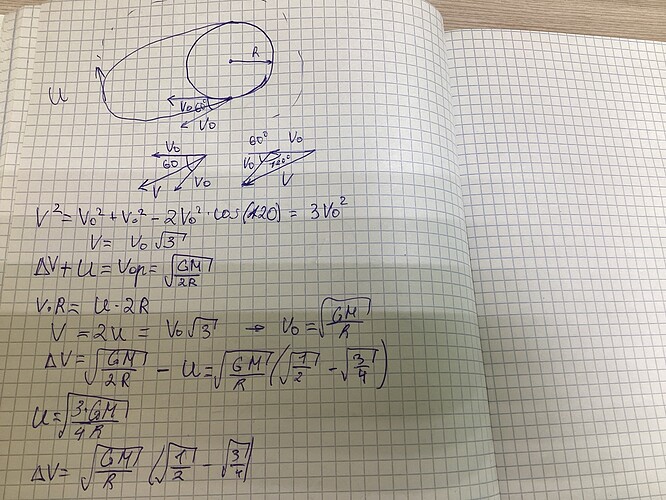 R
U
V₀ 60°
V₀
V₀ 60° V₀
60 V₀ 120°
V V₀ V
V² = V₀² + V₀² - 2V₀² · cos(120) = 3V₀²
V = V₀ √3
ΔV + U = Vор = √(GM/2R)
V·R = U·2R
V = 2U = V₀ √3 → V₀ = √(GM/R)
ΔV = √(GM/2R) - U = √(GM/R) (√(1/2) - √(3/4))
U = √(3·GM/4R)
ΔV = √(GM/R) (√(1/2) - √(3/4))